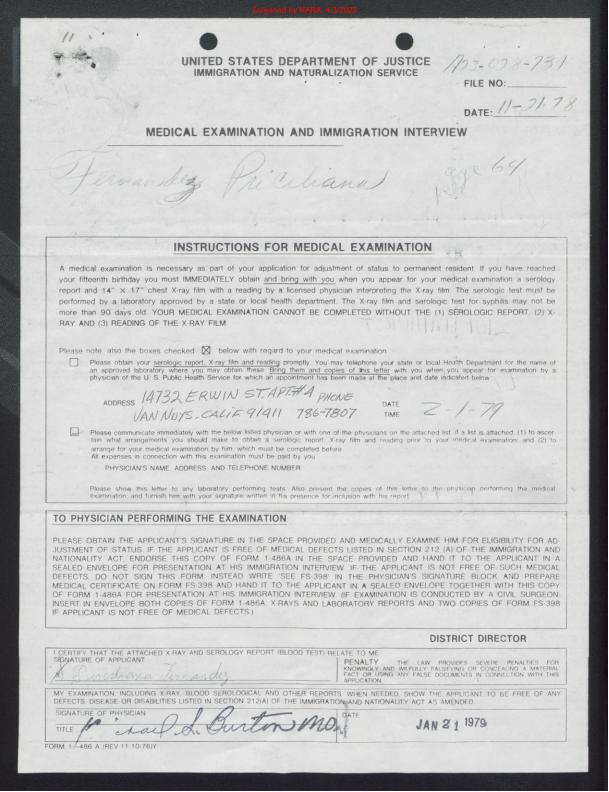 Screened by NARA, 4/3/2023
11
UNITED STATES DEPARTMENT OF JUSTICE
IMMIGRATION AND NATURALIZATION SERVICE
FILE NO:
DATE: 11-21-78
MEDICAL EXAMINATION AND IMMIGRATION INTERVIEW
Fernandez, Priciliana
age 64
INSTRUCTIONS FOR MEDICAL EXAMINATION
A medical examination is necessary as part of your application for adjustment of status to permanent resident. If you have reached
your fifteenth birthday you must IMMEDIATELY obtain and bring with you when you appear for your medical examination a serology
report and 14" X 17" chest X-ray film with a reading by a licensed physician interpreting the X-ray film. The serologic test must be
performed by a laboratory approved by a state or local health department. The X-ray film and serologic test for syphilis may not be
more than 90 days old. YOUR MEDICAL EXAMINATION CANNOT BE COMPLETED WITHOUT THE (1) SEROLOGIC REPORT, (2) X-
RAY AND (3) READING OF THE X-RAY FILM.
Please note, also the boxes checked ☒ below with regard to your medical examination
☐ Please obtain your serologic report, X-ray film and reading promptly. You may telephone your state or local Health Department for the name of
an approved laboratory where you may obtain these. Bring them and copies of this letter with you when you appear for examination by a
physician of the U. S. Public Health Service for which an appointment has been made at the place and date indicated below
ADDRESS 14732 ERWIN ST. APT#4 PHONE DATE
VAN NUYS. CALIF 91911 786-7807 TIME 2-1-79
☐ Please communicate immediately with the below listed physician or with one of the physicians on the attached list if a list is attached: (1) to ascer-
tain what arrangements you should make to obtain a serologic report. X-ray film and reading prior to your medical examination, and (2) to
arrange for your medical examination by him, which must be completed before
All expenses in connection with this examination must be paid by you
PHYSICIAN'S NAME, ADDRESS, AND TELEPHONE NUMBER
Please show this letter to any laboratory performing tests. Also present the copies of this letter to the physician performing the medical
examination, and furnish him with your signature written in his presence for inclusion with his report
TO PHYSICIAN PERFORMING THE EXAMINATION
PLEASE OBTAIN THE APPLICANT'S SIGNATURE IN THE SPACE PROVIDED AND MEDICALLY EXAMINE HIM FOR ELIGIBILITY FOR AD-
JUSTMENT OF STATUS. IF THE APPLICANT IS FREE OF MEDICAL DEFECTS LISTED IN SECTION 212 (A) OF THE IMMIGRATION AND
NATIONALITY ACT, ENDORSE THIS COPY OF FORM 1-486A IN THE SPACE PROVIDED AND HAND IT TO THE APPLICANT IN A
SEALED ENVELOPE FOR PRESENTATION AT HIS IMMIGRATION INTERVIEW. IF THE APPLICANT IS NOT FREE OF SUCH MEDICAL
DEFECTS, DO NOT SIGN THIS FORM. INSTEAD WRITE 'SEE FS-398' IN THE PHYSICIAN'S SIGNATURE BLOCK AND PREPARE
MEDICAL CERTIFICATE ON FORM FS-398 AND HAND IT TO THE APPLICANT IN A SEALED ENVELOPE TOGETHER WITH THIS COPY
OF FORM 1-486A FOR PRESENTATION AT HIS IMMIGRATION INTERVIEW. (IF EXAMINATION IS CONDUCTED BY A CIVIL SURGEON:
INSERT IN ENVELOPE BOTH COPIES OF FORM 1-486A, X-RAYS AND LABORATORY REPORTS AND TWO COPIES OF FORM FS-398
IF APPLICANT IS NOT FREE OF MEDICAL DEFECTS.)
DISTRICT DIRECTOR
I CERTIFY THAT THE ATTACHED X-RAY AND SEROLOGY REPORT (BLOOD TEST) RELATE TO ME
SIGNATURE OF APPLICANT
Fernandez
PENALTY THE LAW PROVIDES SEVERE PENALTIES FOR
KNOWINGLY AND WILFULLY FALSIFYING OR CONCEALING A MATERIAL
FACT OR USING ANY FALSE DOCUMENTS IN CONNECTION WITH THIS
APPLICATION.
MY EXAMINATION, INCLUDING X-RAY, BLOOD SEROLOGICAL AND OTHER REPORTS, WHEN NEEDED, SHOW THE APPLICANT TO BE FREE OF ANY
DEFECTS, DISEASE OR DISABILITIES LISTED IN SECTION 212(A) OF THE IMMIGRATION AND NATIONALITY ACT AS AMENDED
SIGNATURE OF PHYSICIAN
TITLE Michael L. Burton MD.
DATE
JAN 21 1979
FORM 1-486 A (REV 11-10-76)Y